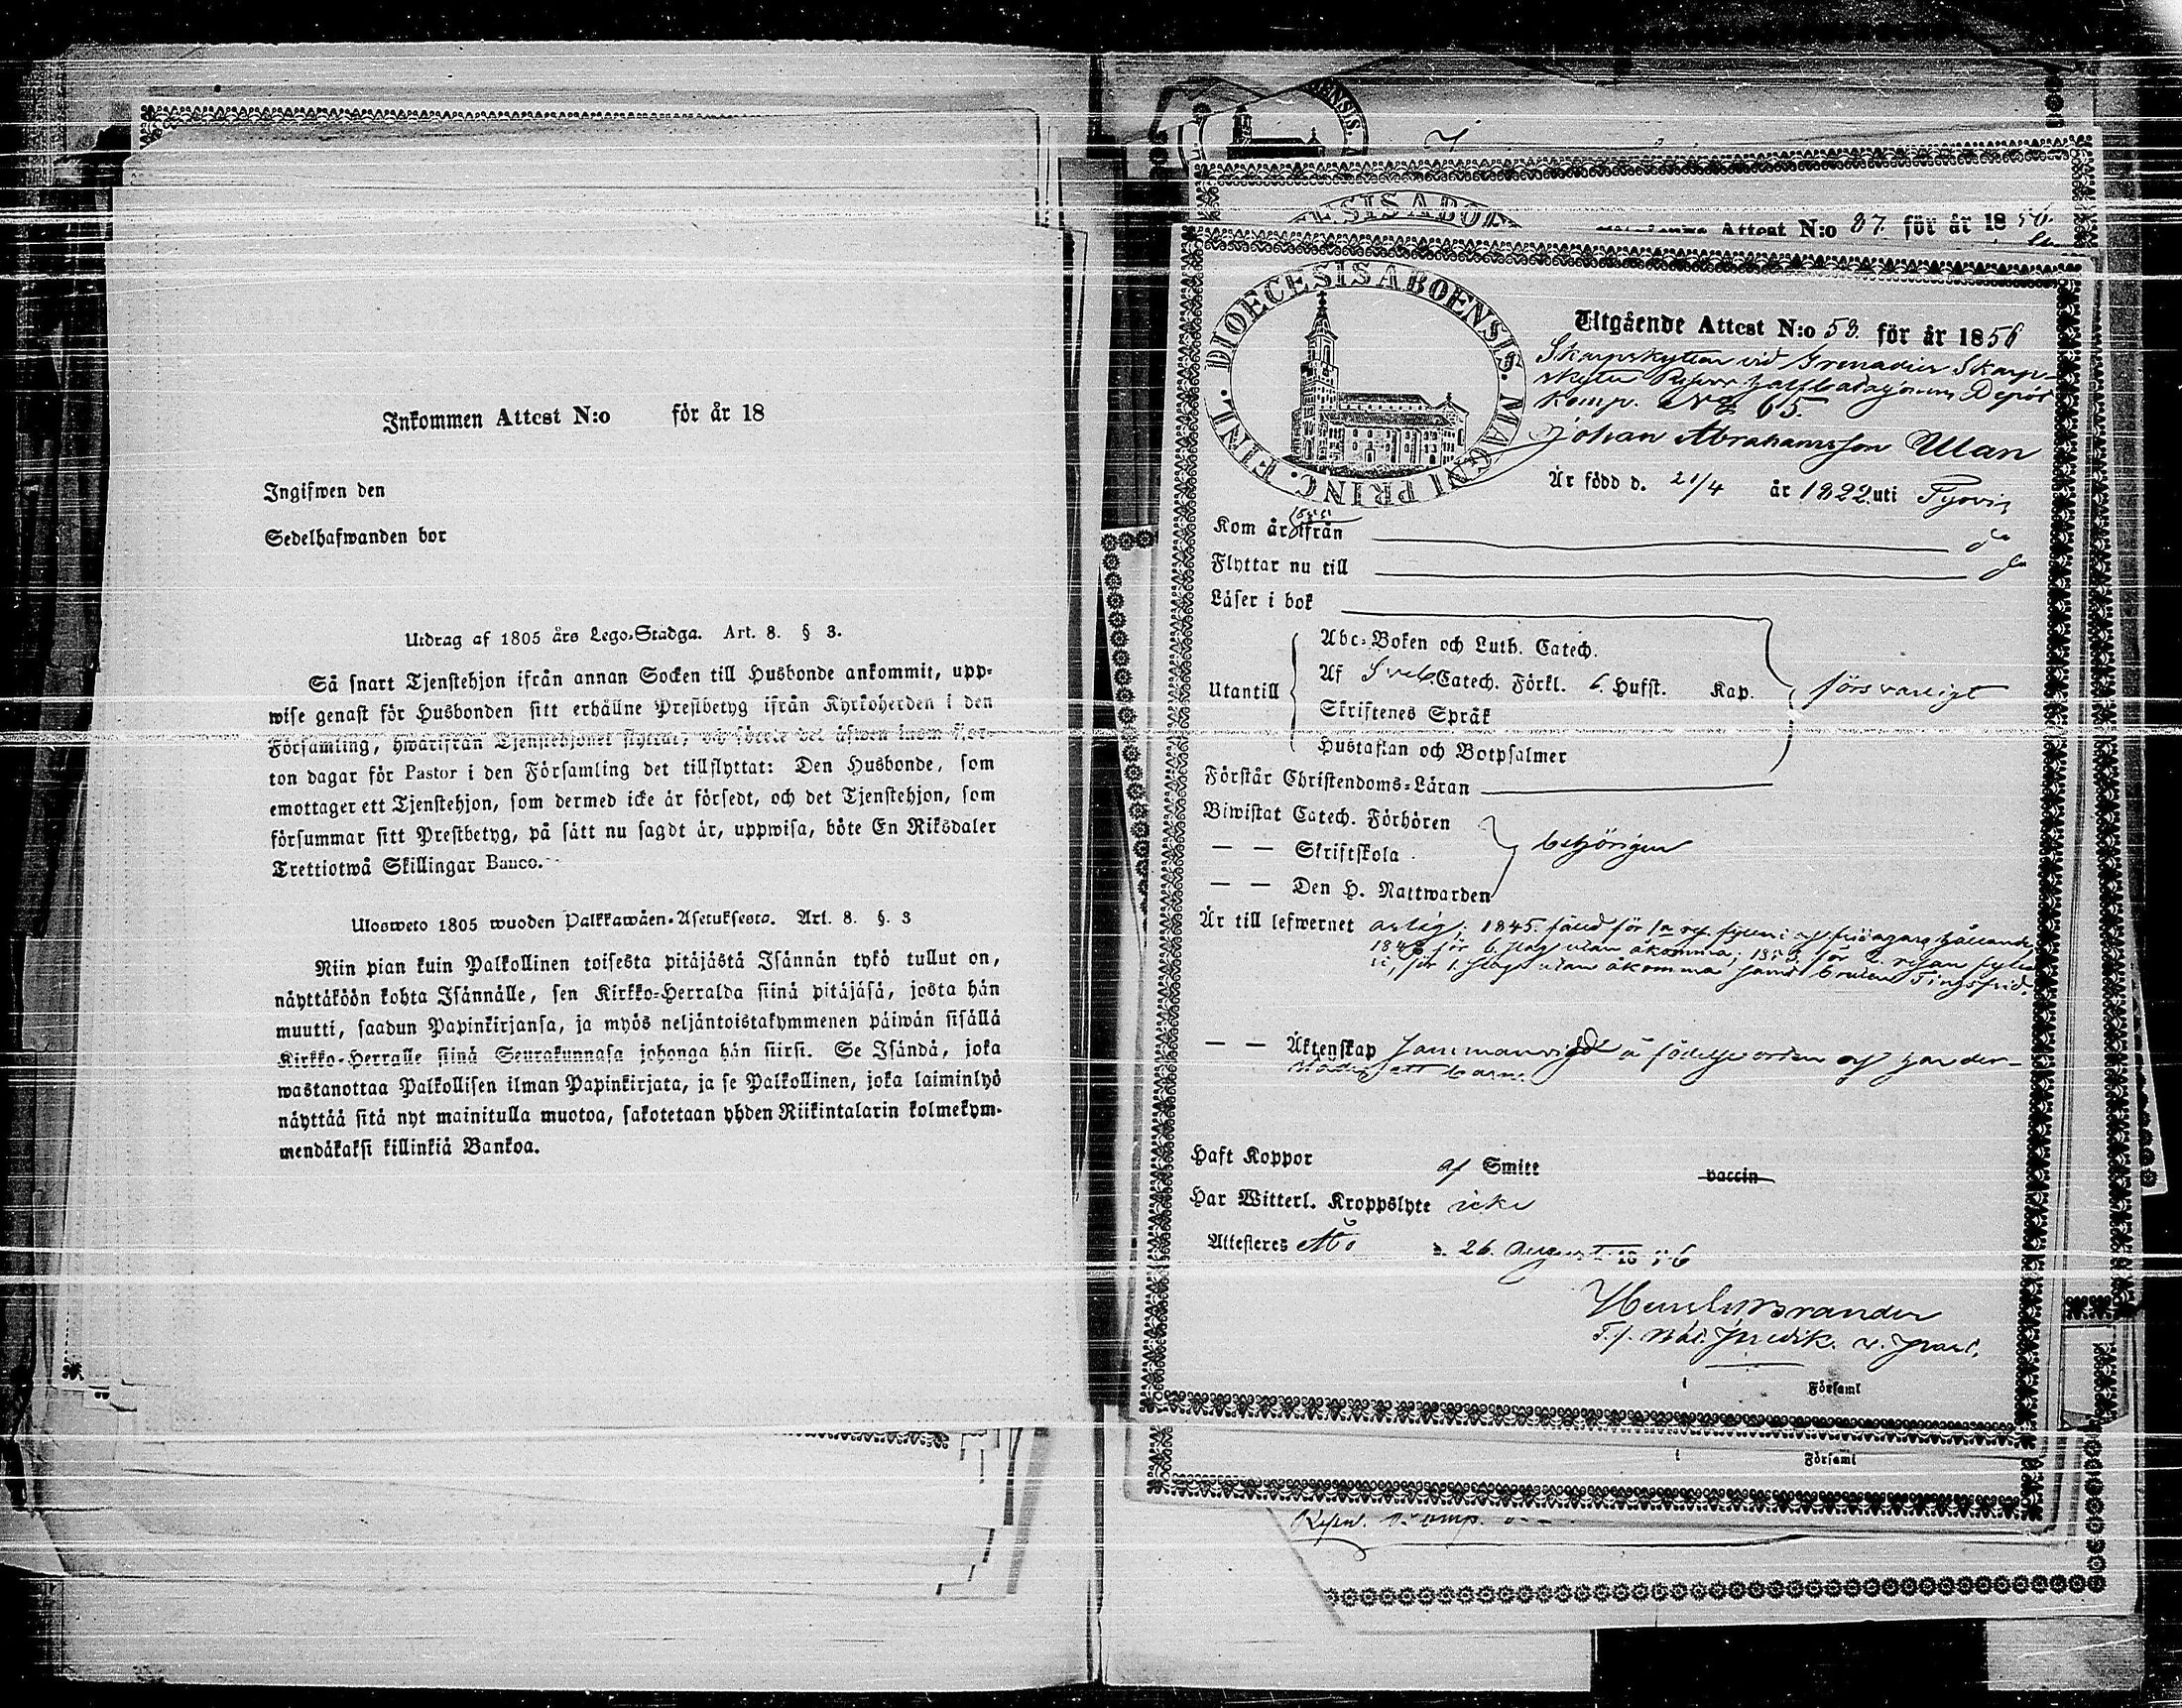 Inkommen Attest N:o för år 18
Ingifwen den
Sedelhafwanden bor
Utdrag af 1805 års Lego-Stadga. Art. 8. § 3.
Så snart Tjenstehjon ifrån annan Socken till Husbonde ankommit, upp-
wise genast för Husbonden sitt erhållne Prestbetyg ifrån Kyrkoherden i den
Församling, hwarifrån Tjenstehjonet flyttat; och förete det äfwen inom fjor-
ton dagar för Pastor i den Församling det tillflyttat: Den Husbonde, som
emottager ett Tjenstehjon, som dermed icke är försedt, och det Tjenstehjon, som
försummar sitt Prestbetyg, på sätt nu sagdt är, uppwisa, böte En Riksdaler
Trettiotwå Skillingar Banco.
Ulosweto 1805 wuoden Palkkawäen-Asetuksesta. Art. 8. §. 3
Niin pian kuin Palkollinen toisesta pitäjästä Isännän tykö tullut on,
näyttäköön kohta Isännälle, sen Kirkko-Herralda siinä pitäjäsä, josta hän
muutti, saadun Papinkirjansa, ja myös neljäntoistakymmenen päiwän sisällä
Kirkko-Herralle siinä Seurakunnasa johonga hän siirsi. Se Isändä, joka
wastanottaa Palkollisen ilman Papinkirjata, ja se Palkollinen, joka laiminlyö
näyttää sitä nyt mainitulla muotoa, sakotetaan yhden Riikintalarin kolmekym-
mendäkaksi killinkiä Bankoa.
ENSIS.
ESIS ABOE
Attest N:o 37. för år 1856
DIOECESIS ABOENSIS. MAGNI PRINC. FINL.
Utgående Attest N:o 53. för år 1856
Skarpskytten vid Grenadier Skarp-
skytte Reserv halfbataljonens Depôt
Komp. N:o 65.
Johan Abrahamsson Ulan
Är född d. 21/4 år 1822 uti Pyovis
Kom år ifrån do
Flyttar nu till do
Läser i bok
Abc-Boken och Luth. Catech.
Utantill Af Sveb. Catech. Förkl. 6. Hufst. Kap. försvarligt
Skriftenes Språk
Hustaflan och Botpsalmer
Förstår Christendoms-Läran
Biwistat Catech. Förhören
— — Skriftskola behörigen
— — Den H. Nattwarden
Är till lefwernet 1845. fälld för 1a
1848 för 6. slag utan åkomma; för 2. resan
för 1. slag utan åkomma samt Tingsfrid.
— — Äktenskap Sammanvigd å födelseorten och har der-
städes ett barn.
Haft Koppor af Smitt vaccin
Har Witterl. Kroppslyte icke
Attesteres Åbo d. 26 August 1856
Brander
T. f. Bat. Predik. v. past.
Församl
Församl
Reserv. Komp.